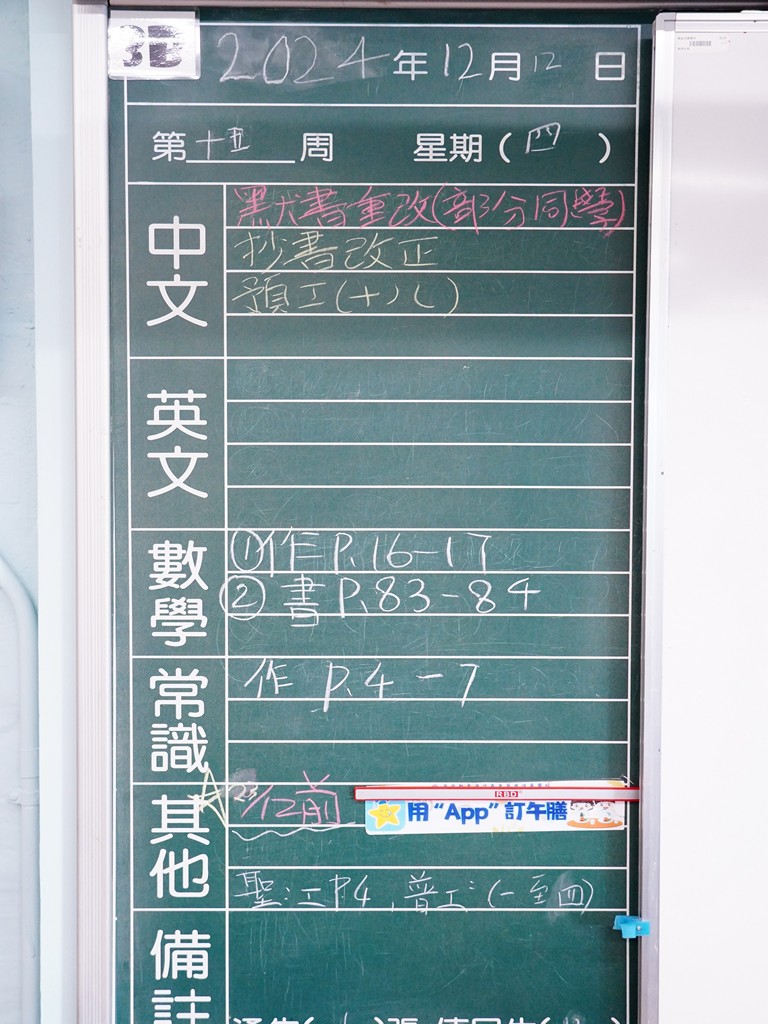 3B
2024年12月12日
第十五周 星期(四)
中文
默書重改(部分同學)
抄書改正
預工(十八)
英文
數學
①作P.16-17
②書P.83-84
常識
作 P.4-7
其他
/12前
RBD
用“App”訂午膳
聖:工P.4,普工:(一至四)
備註